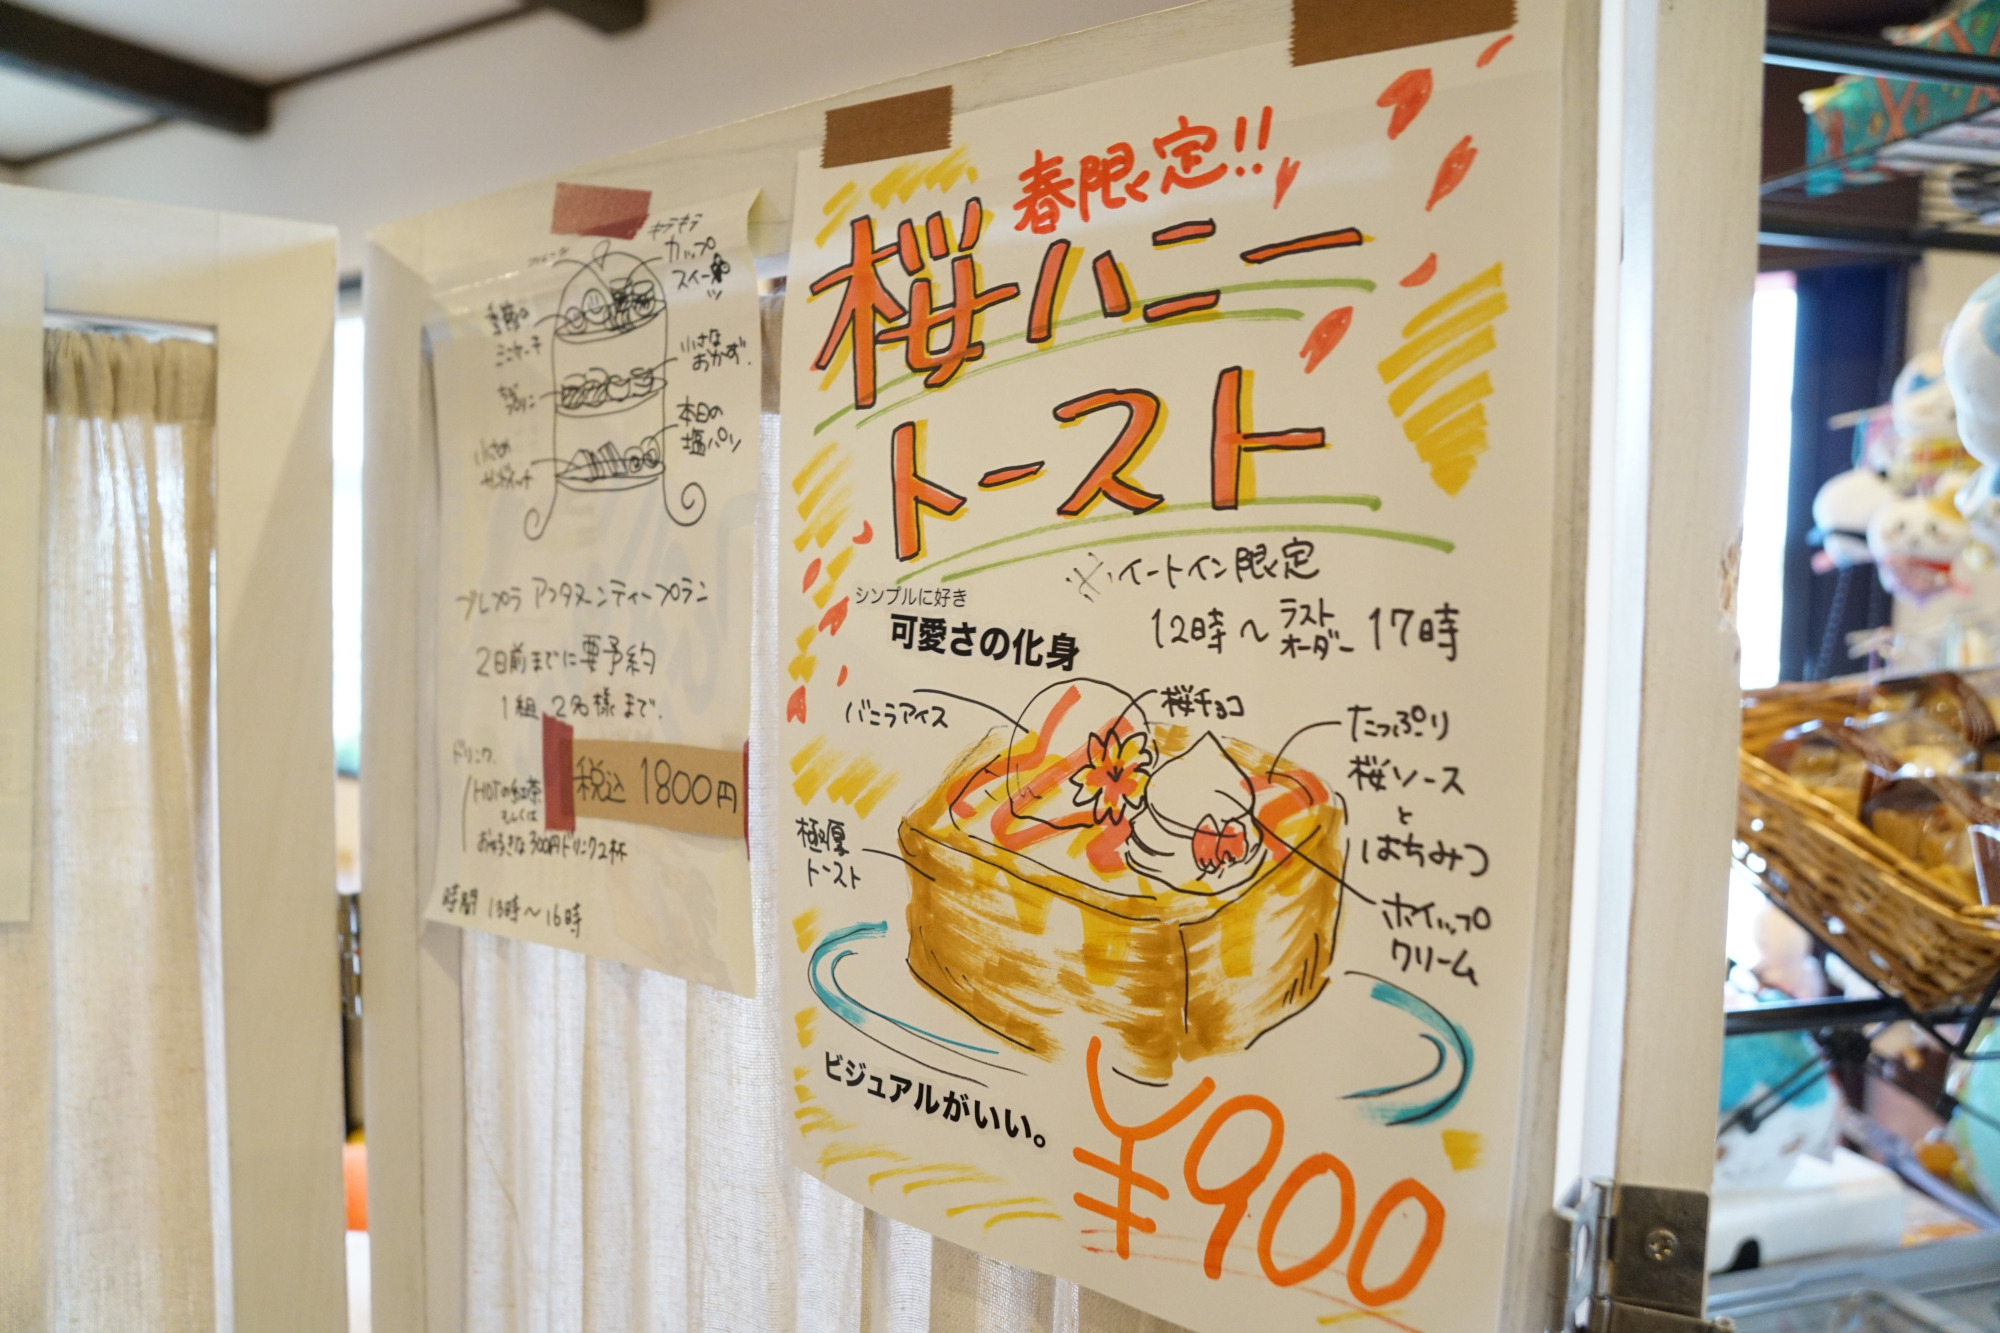 キラキラ
カップ
スイーツ
季節の
ミニケーキ
小さな
おかず.
プリン
本日の
塩パン
小さめ
サンドイッチ
プレプラ アフタヌーンティープラン
2日前までに要予約
1組 2名様まで.
ドリンク
HOTの紅茶
もしくは
お好きな300円ドリンク2杯
税込 1800円
時間 13時〜16時
春限定!!
桜ハニー
トースト
※イートイン限定
12時〜ラストオーダー 17時
シンプルに好き
可愛さの化身
バニラアイス
桜チョコ
たっぷり
桜ソース
と
はちみつ
極厚
トースト
ホイップ
クリーム
ビジュアルがいい。
¥900